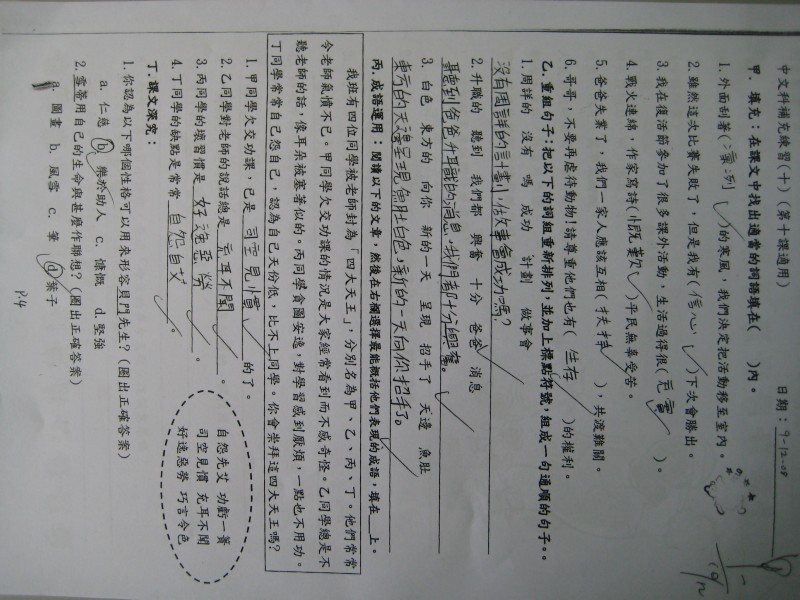 中文科補充練習(十)(第十課適用)
日期:9-12-08
甲. 填充:在課文中找出適當的詞語填在( )內。
1. 外面刮著(凜冽)的寒風,我們決定把活動移至室內。
2. 雖然這次比賽失敗了,但是我有(信心)下次會勝出。
3. 我在復活節參加了很多課外活動,生活過得很(充實)。
4. 戰火連綿,作家寫詩(慨歎)平民無辜受苦。
5. 爸爸失業了,我們一家人應該互相(扶持),共渡難關。
6. 哥哥,不要再虐待動物!請尊重他們也有(生存)的權利。
乙. 重組句子:把以下的詞組重新排列,並加上標點符號,組成一句通順的句子。。
1. 周詳的 沒有 嗎 成功 計劃 做事會
沒有周詳的計劃,做事會成功嗎?
2. 升職的 聽到 我們都 興奮 十分 爸爸 消息
聽到爸爸升職的消息,我們都十分興奮。
3. 白色 東方的 向你 新的一天 呈現 招手了 天邊 魚肚
東方的天邊呈現魚肚白色,新的一天向你招手了。
丙. 成語運用:閱讀以下的文章,然後在右欄選擇最能概括他們表現的成語,填在__上。
我班有四位同學被老師封為「四大天王」,分別名為甲、乙、丙、丁。他們常常
令老師氣憤不已。甲同學欠交功課的情況是大家經常看到而不感奇怪。乙同學總是不
聽老師的話,像耳朵被塞著似的。丙同學貪圖安逸,對學習感到厭煩,一點也不用功。
丁同學常常自己怨自己,認為自己天份低,比不上同學。你會崇拜這四大天王嗎?
1. 甲同學欠交功課,已是 司空見慣 的了。
2. 乙同學對老師的說話總是 充耳不聞 。
3. 丙同學的壞習慣是 好逸惡勞 。
4. 丁同學的缺點是常常 自怨自艾 。
自怨自艾 功虧一簣
司空見慣 充耳不聞
好逸惡勞 巧言令色
丁. 課文深究:
1. 你認為以下哪個性格可以用來形容貝門先生?(圈出正確答案)
a. 仁慈 b. 樂於助人 c. 慷慨 d. 堅強
2. 雪蒂用自己的生命與甚麼作聯想?(圈出正確答案)
a. 圖畫 b. 風雪 c. 筆 d. 葉子
P.4